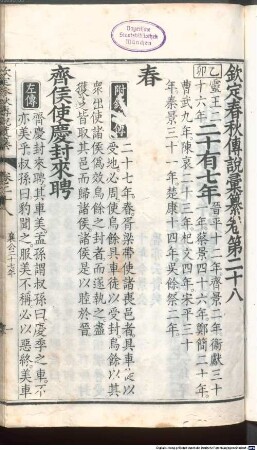 Bayerische
Staatsbibliothek
München
欽定春秋傳說彙纂卷第二十八
乙卯
靈王二十六年
二十有七年
晉平十二年齊景二年衞獻三十
年蔡景四十六年鄭簡二十年
曹武九年陳哀二十三年杞文四年宋平三十
年秦景三十一年楚康十四年吳餘祭二年
春
附錄
傳
二十七年春胥梁帶使諸喪邑者具車徒以
受地必周使烏餘具車徒以受封烏餘以其
衆出使諸侯偽效烏餘之封者而遂執之盡
獲之皆取其邑而歸諸侯諸侯是以睦於晉
齊侯使慶封來聘
左傳
齊慶封來聘其車美孟孫謂叔孫曰慶季之車不
亦美乎叔孫曰豹聞之服美不稱必以惡終美車
襄公二十七年